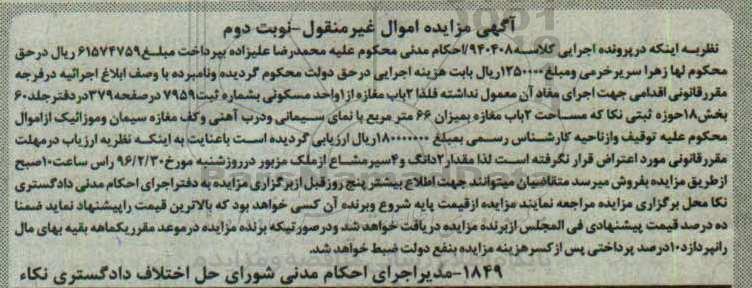 آگهی مزایده اموال غیرمنقول-نوبت دوم
نظربه اینکه درپرونده اجرایی کلاسه۹۴۰۴۰۸/احکام مدنی محکوم علیه محمدرضا علیزاده بپرداخت مبلغ۶۱۵۷۴۷۵۹ ریال درحق
محکوم لها زهرا سرپرخرمی ومبلغ۱۲۵۰۰۰۰ریال بابت هزینه اجرایی درحق دولت محکوم گردیده ونامبرده با وصف ابلاغ اجرائیه درفرجه
مقررقانونی اقدامی جهت اجرای مفاد آن معمول نداشته فلذا ۲باب مغازه از۱واحد مسکونی بشماره ثبت۷۹۵۹ درصفحه۳۷۹دردفترجلد۶۰
بخش۱۸حوزه ثبتی نکا که مساحت ۲باب مغازه بمیزان ۶۶ متر مربع با نمای سیمانی ودرب آهنی وکف مغازه سیمان وموزائیک ازاموال
محکوم علیه توقیف وازناحیه کارشناس رسمی بمبلغ ۱۸۰۰۰۰۰۰۰ریال ارزیابی گردیده است باعنایت به اینکه نظریه ارزیاب درمهلت
مقررقانونی مورد اعتراض قرار نگرفته است لذا مقدار۲دانگ و۴سیرمشاع ازملک مزبور درروزشنبه مورخ۹۶/۲/۳۰ راس ساعت۱۰صبح
ازطریق مزایده بفروش میرسد متقاضیان میتوانند جهت اطلاع بیشتر پنج روزقبل ازبرگزاری مزایده به دفتراجرای احکام مدنی دادگستری
نکا محل برگزاری مزایده مراجعه نمایند مزایده ازقیمت پایه شروع وبرنده آن کسی خواهد بود که بالاترین قیمت راپیشنهاد نماید ضمنا
ده درصد قیمت پیشنهادی فی المجلس ازبرنده مزایده دریافت خواهد شد ودرصورتیکه برنده مزایده درموعد مقرریکماهه بقیه بهای مال
رانپردازد۱۰درصد پرداختی پس ازکسرهزینه مزایده بنفع دولت ضبط خواهد شد.
۱۸۴۹-مدیراجرای احکام مدنی شورای حل اختلاف دادگستری نکاء